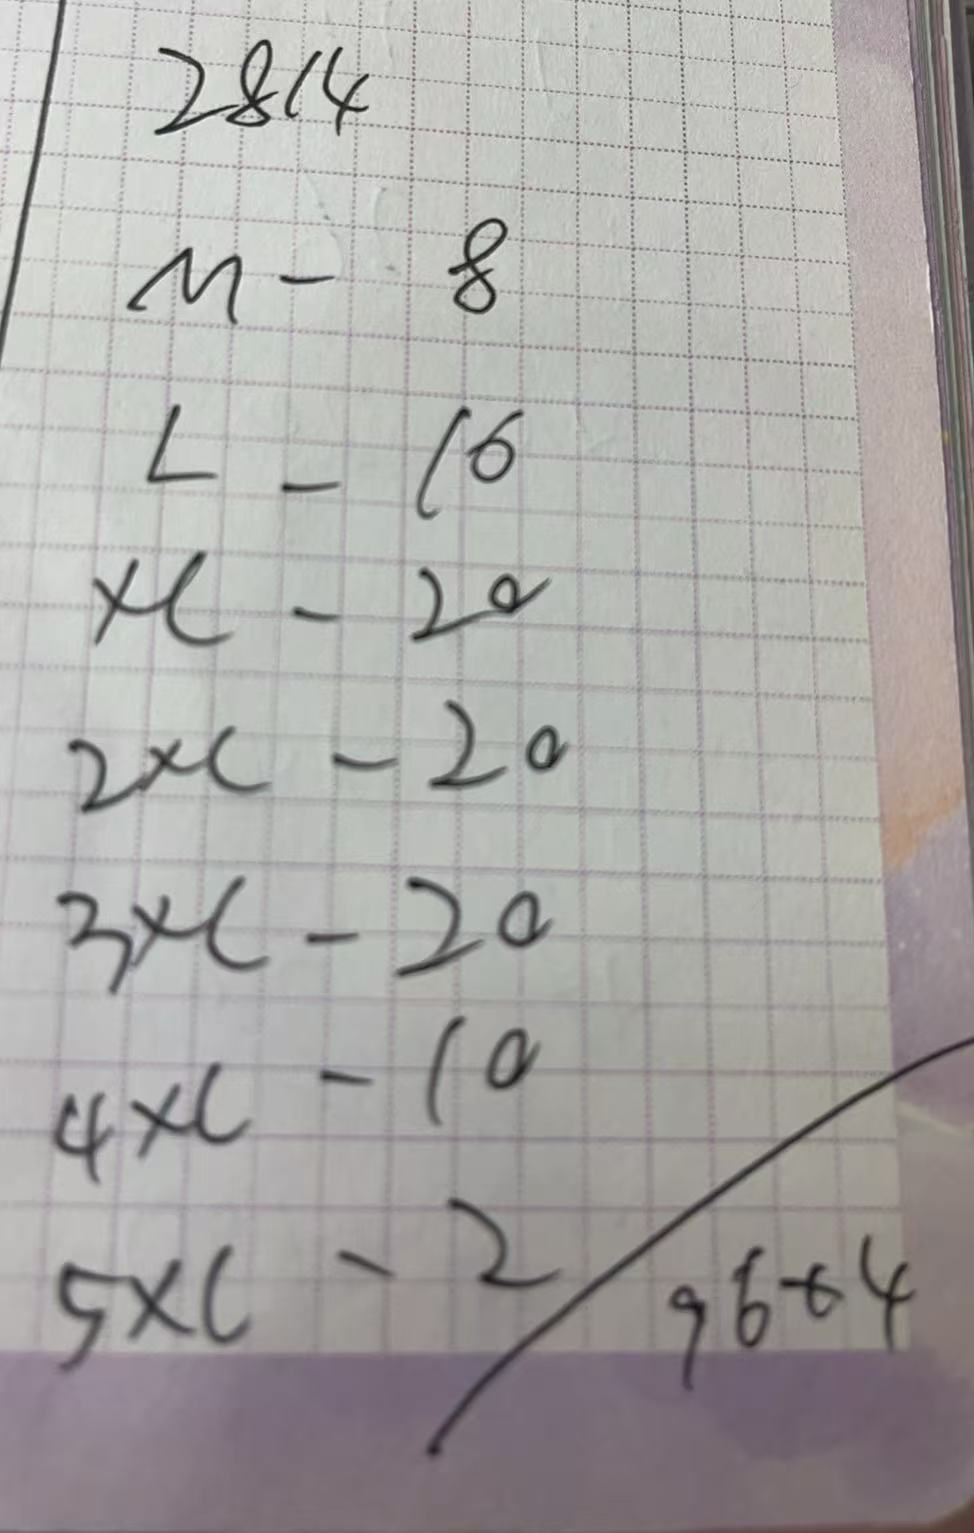 2814
M - 8
L - 16
XL - 20
2XL - 20
3XL - 20
4XL - 10
5XL - 2
96+4